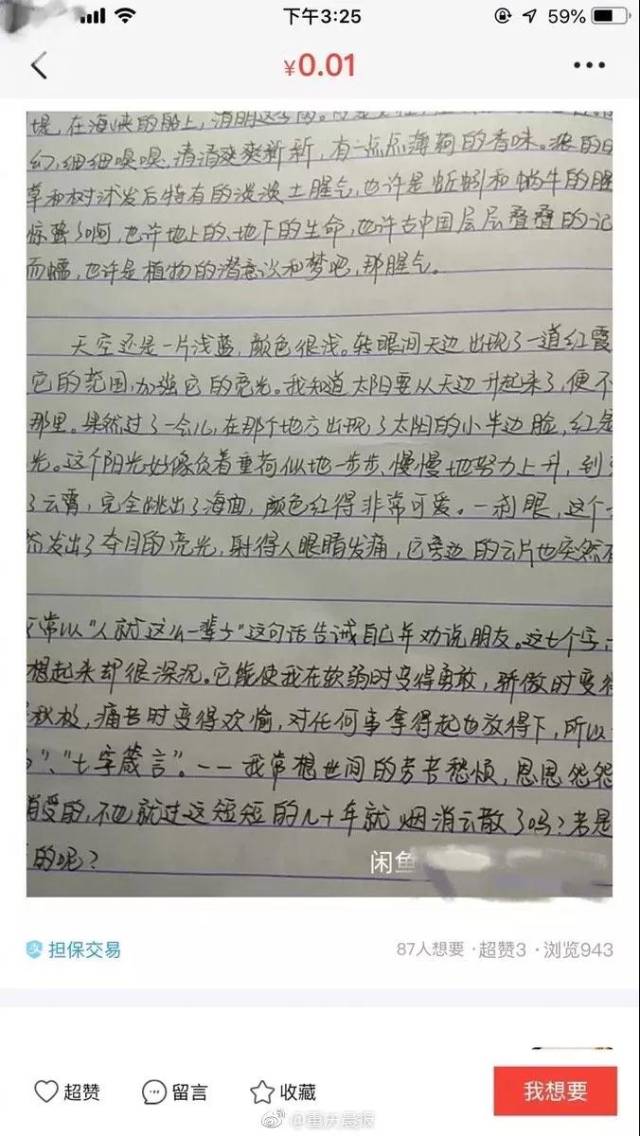 下午3:25
59%
¥0.01
堤,在海峡的船上,清明这
幻,细细嗅嗅,清清爽爽新新,有一点点薄荷的香味。浓的
草和树沐发后特有的淡淡土腥气,也许是蚯蚓和蜗牛的腥
惊蛰了啊,也许地上的、地下的生命,也许古中国层层叠叠的记
而蠕,也许是植物的潜意识和梦吧,那腥气。
天空还是一片浅蓝,颜色很浅。转眼间天边出现了一道红霞
它的范围,加强它的亮光。我知道太阳要从天边升起来了,便不
那里。果然过了一会儿,在那个地方出现了太阳的小半边脸,红是
光。这个阳光好像负着重荷似地一步步、慢慢地努力上升,到
了云霄,完全跳出了海面,颜色红得非常可爱。一刹眼,这个
发出了夺目的亮光,射得人眼睛发痛,它旁边的云片也突然
常以“人就这么一辈子”这句话告诫自己并劝说朋友。这七个字,
想起来却很深沉。它能使我在软弱时变得勇敢,骄傲时变得
积极,痛苦时变得欢愉,对任何事拿得起也放得下,所以
”、“七字箴言”。——我常想世间的劳苦愁烦、恩恩怨怨
消受的,不也就过这短短的几十年就烟消云散了吗?若是
的呢?
闲鱼
担保交易
87人想要·超赞3·浏览943
超赞
留言
收藏
我想要
@重庆晨报